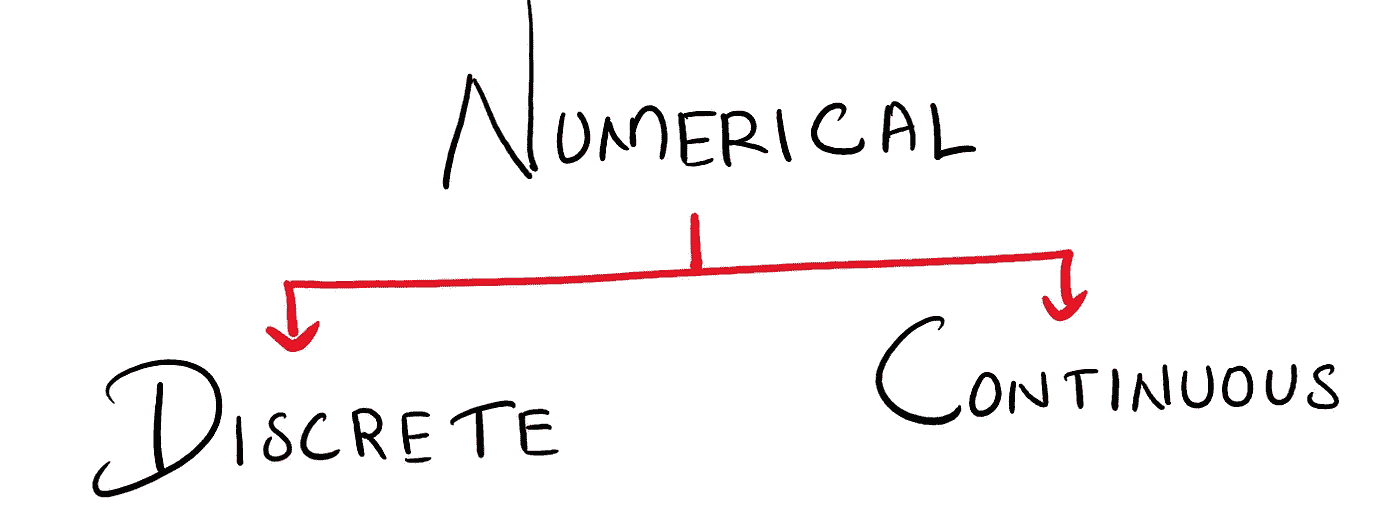 NUMERICAL
DISCRETE
CONTINUOUS